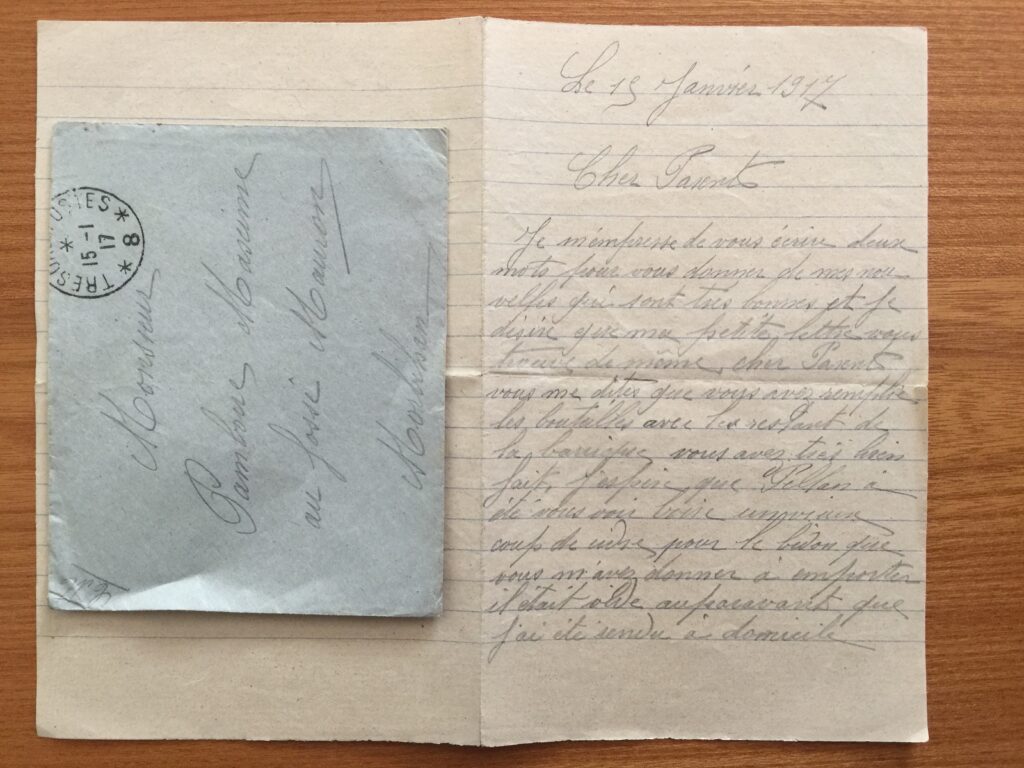 TRESOR ET POSTES
* 15-1 *
17
* 8 *
Monsieur
Pambour Maxime
au José Mauron
Morbihan
Le 15 Janvier 1917
Cher Parents
Je m'empresse de vous écrire deux
mots pour vous donner de mes nou
velles qui sont très bonnes et je
désire que ma petite lettre vous
trouve de même, cher Parents
vous me dites que vous avez remplie
les boutailles avec les restant de
la barrique vous avez très bien
fait, j'espère que Pellan a
été vous voir boire un vieux
coup de cidre pour le bidon que
vous m'avez donner à emporter
il était vide auparavant que
j'ai été rendu à domicile